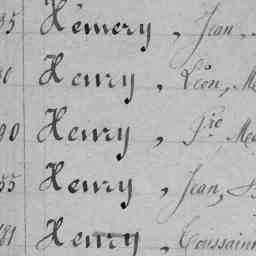 35 Hémery, Jean,
Henry, Léon, Me
90 Henry, Pie Me
55 Henry, Jean,
181 Henry, Toussaint